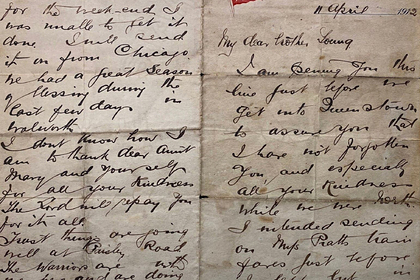 11 April 1912
My dear brother Young
I am penning you this
line just before we
get into Queenstown
to assure you that
I have not forgotten
you and especially
all your kindness
while we were North.
I intended sending
on Miss Pratts train
fares just before
I left but
for the week-end I
was unable to get it
done. I will send
it on from Chicago
we had a great season
of blessing during the
last few days in
Walworth.
I dont know how I
am to thank dear Aunt
Mary and yourself
for all your kindness
The Lord will repay you
for it all.
Trust things are going
well at Paisley Road
The Warriors are with
are doing